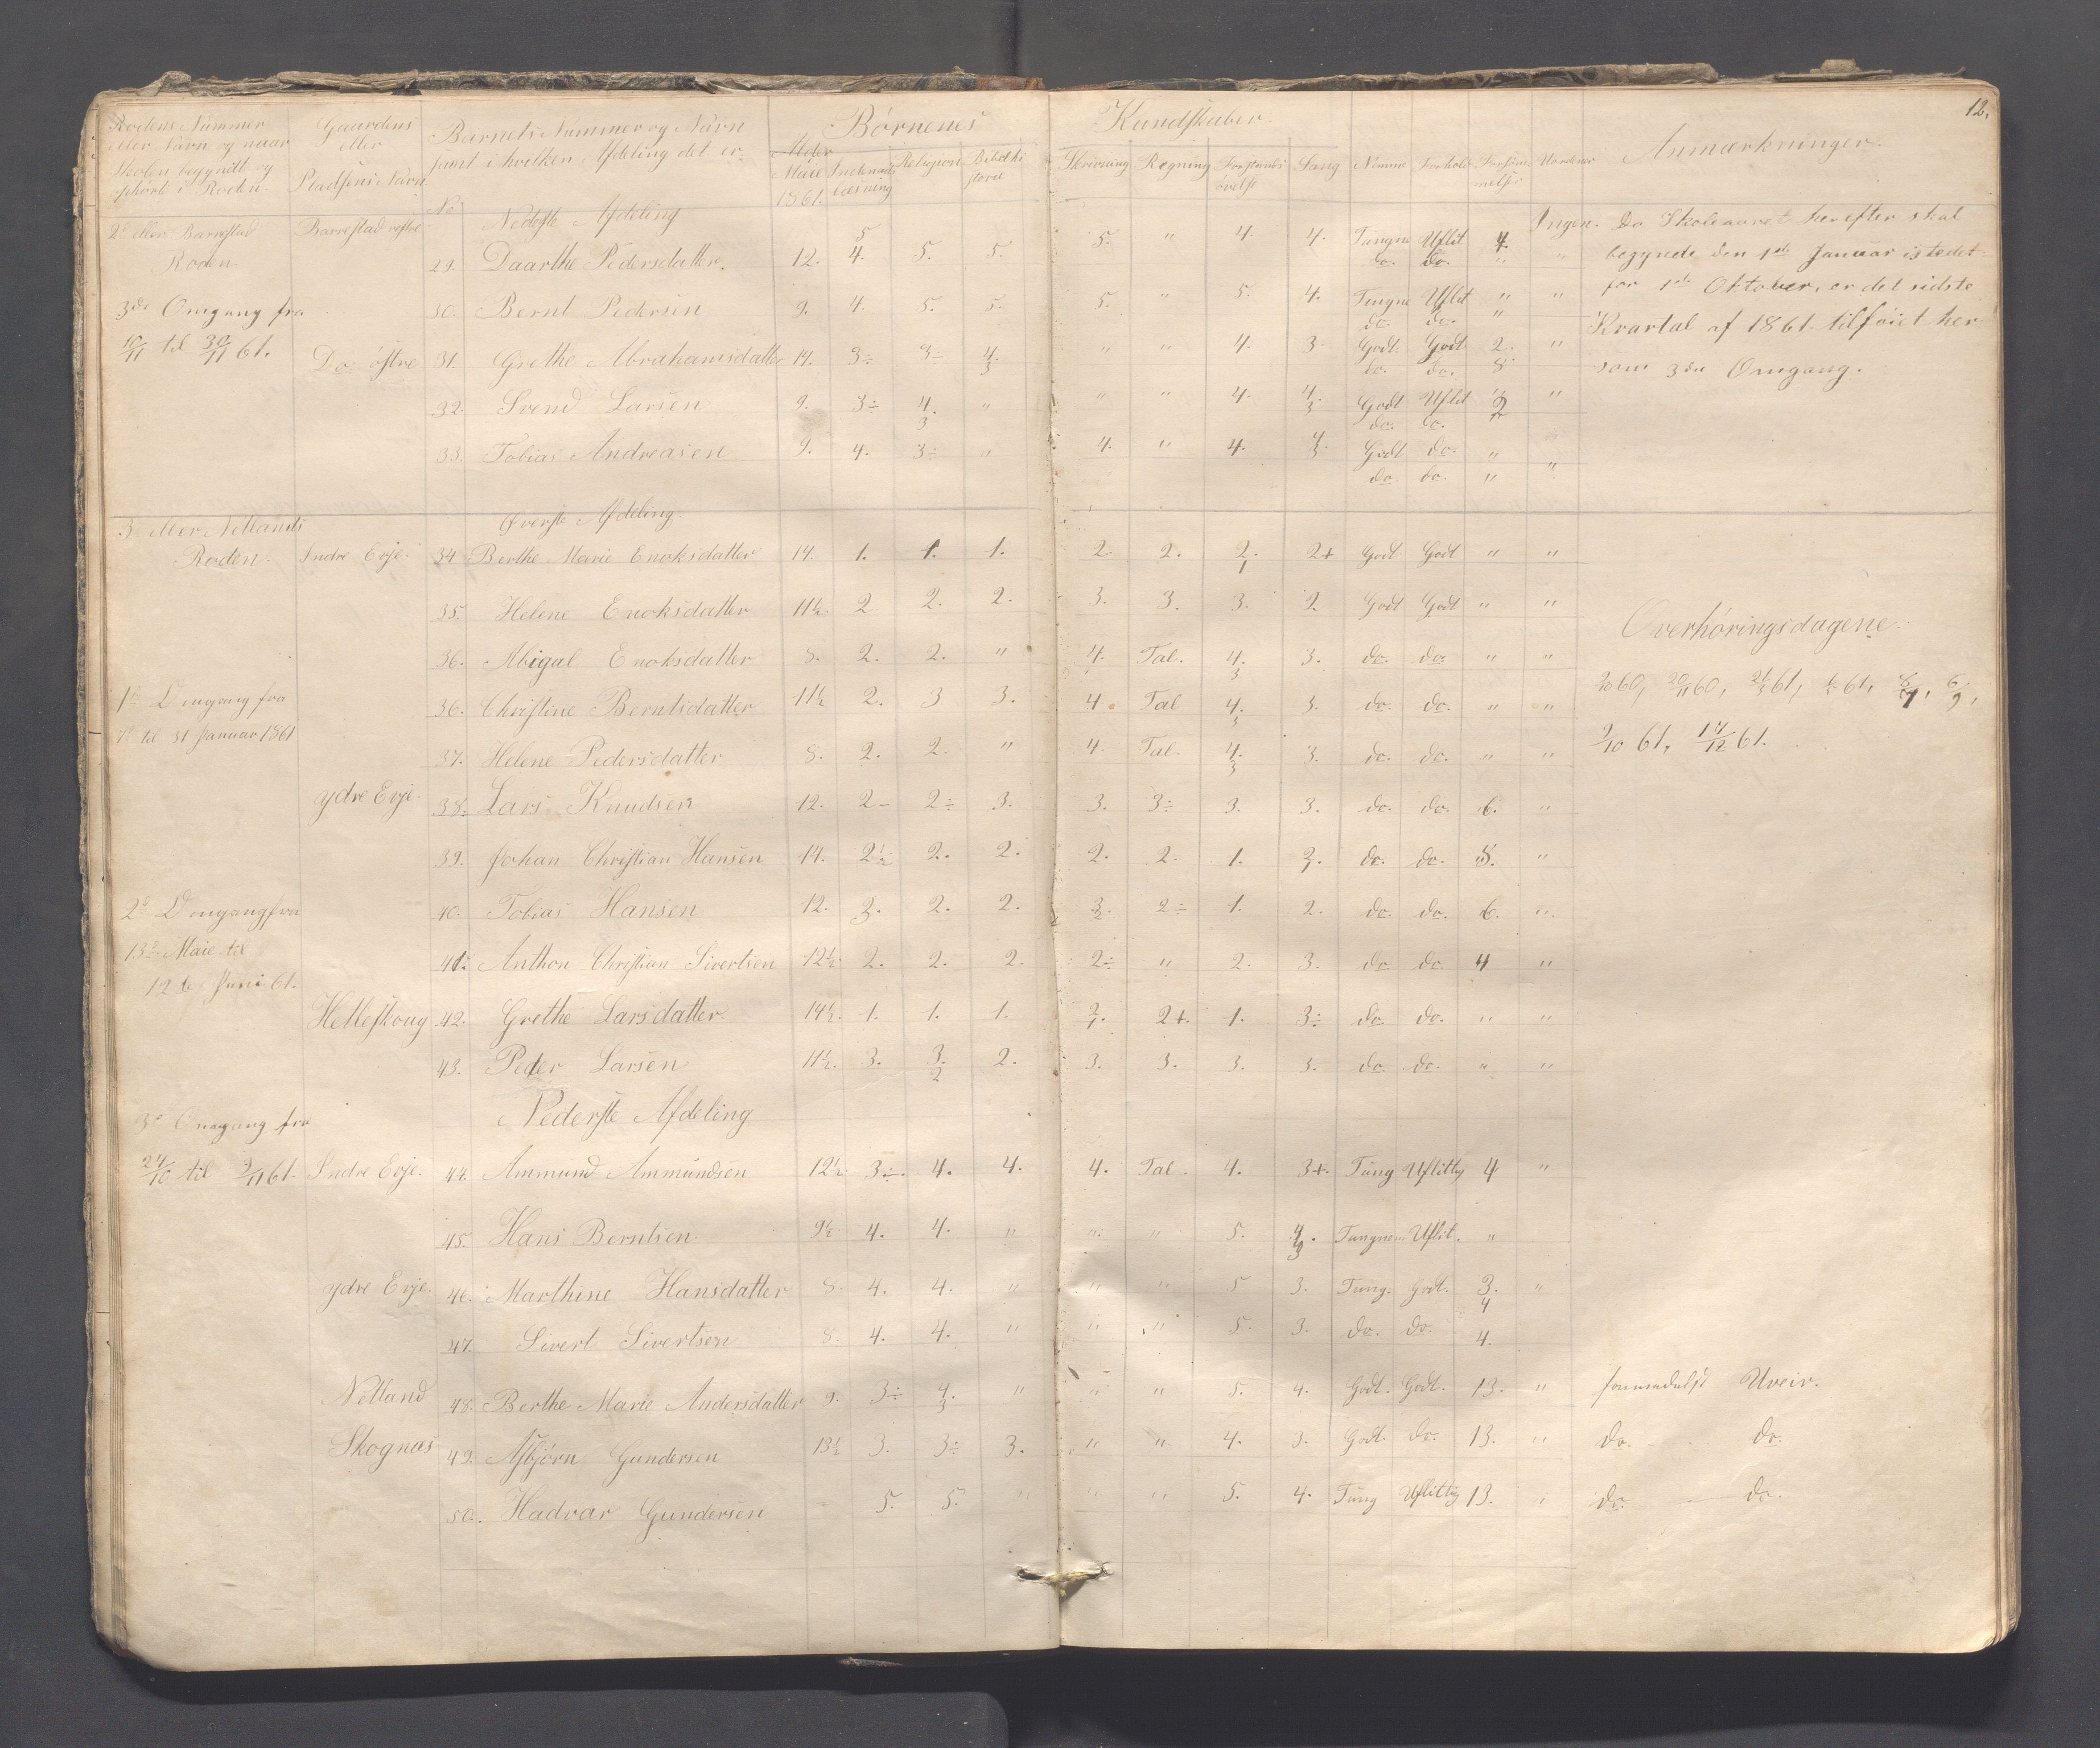 12.
Rodens Nummer
eller Navn og naar
Skolen begyndt og
ophørt i Roden.
Gaardens
eller
Pladsens Navn
Barnets Nummer og Navn
samt i hvilken Afdeling det er.
No
Børnenes Kundskaber.
Alder
Maie
1861.
Indenad
læsning
Religion
Bibelhi
storie
Skrivning
Regning
Forstands
øvelse
Sang
Nemme
Forhold
Forsøm
melser
Uordener
Anmærkninger.
Nederste Afdeling
2 eller Barrestad Roden. Barrestad vestre 29. Daarthe Pedersdatter. 12. 5 4. 5. 5. 5. " 4. 4. Tungne Uflit 4. Ingen.
do. do. " "
3de Omgang fra 30. Bernt Pedersen 9. 4. 5. 5. 5. " 5. 4. Tungne Uflit " "
do. do. "
11/11 til 30/11 61. Do. østre 31. Grethe Abrahamsdatter 14. 3÷ 3÷ 4. 3 " " 4. 3. Godt. Godt 2. "
do. do. 8
32. Svend Larsen 9. 3÷ 4. 3 " " " 4. 4. 3 Godt Uflit 3 2 "
do. do.
33. Tobias Andreasen 9. 4. 3÷ " 4. " 4. 4 3. Godt do. "
do. do. " "
Da Skoleaaret herefter skal
begynde den 1ste Januar istedet-
for 1ste Oktober, er det sidste
Kvartal af 1861. tilføiet her
som 3de Omgang.
Øverste Afdeling.
3 eller Netlands Roden. Indre Evje. 34 Berthe Marie Enoksdatter 14. 1. 1. 1. 2. 2. 2. 1 2+ Godt Godt " "
35. Helene Enoksdatter 11½. 2 2. 2. 3. 3. 3. 2 Godt Godt " "
36. Abigal Enoksdatter 8. 2. 2. " 4. Tal. 4. 3 3. do. do. " "
1ste Omgang fra 36. Christine Berntsdatter 11½ 2. 3 3. 4. Tal 4. 3 3. do. do. " "
7 til 31 Januar 1861 37. Helene Pedersdatter 8. 2. 2. " 4. Tal. 4. 3 3. do. do. " "
Overhøringsdagene.
60, 20/11 60, 21/3 61, 61,
9/10 61, 14/12 61.
ydre Evje. 38. Lars Knudsen 12. 2- 2÷ 3. 3. 3÷ 3. 3. do. do. 6. "
39. Johan Christian Hansen 14. 2½ 2. 2. 2. 2. 1. 2. do. do. 8. "
2 Omgang fra 40. Tobias Hansen 12. 2. 3 2. 2. 3. 2 2÷ 1. 2. do. do. 6. "
13 Maie til 41. Anthon Christian Sivertsen 12½ 2. 2. 2. 2÷ " 2. 3. do. do. 4 "
12 Juni 61.
Helleskoug 42. Grethe Larsdatter. 14½. 1. 1. 1. 2. 1 2+. 1. 3÷ do. do. " "
43. Peder Larsen 11½. 3. 3. 2 2. 3. 3. 3. 3. do. do. " "
Nederste Afdeling
3 Omgang fra
24/10 til 9/11 61. Indre Evje. 44. Ammund Ammundsen 12½. 3÷. 4. 4. 4. Tal. 4. 3+. Tung Uflittig 4 "
45. Hans Berntsen 9½ 4. 4. " " " 5. 4 3. Tungnem Uflit. "
ydre Evje. 46. Marthine Hansdatter 8. 4. 4. " " " 5 3. Tung. Godt. 3. 4 "
47. Sivert Sivertsen 8. 4. 4. " " " 5. 3. do. do. 4.
Netland 48. Berthe Marie Andersdatter 9. 3÷ 4. 3 " " " 5. 4. Godt. Godt. 13. " formedelst Uveir.
Skognæs 49. Asbjørn Gundersen 13½ 3. 3÷ 3. " " 4. 3. Godt. do. 13. " do. do.
50. Hadvar Gundersen 5. 5. " " " 5. 4. Tung Uflittig 13. " do. do.